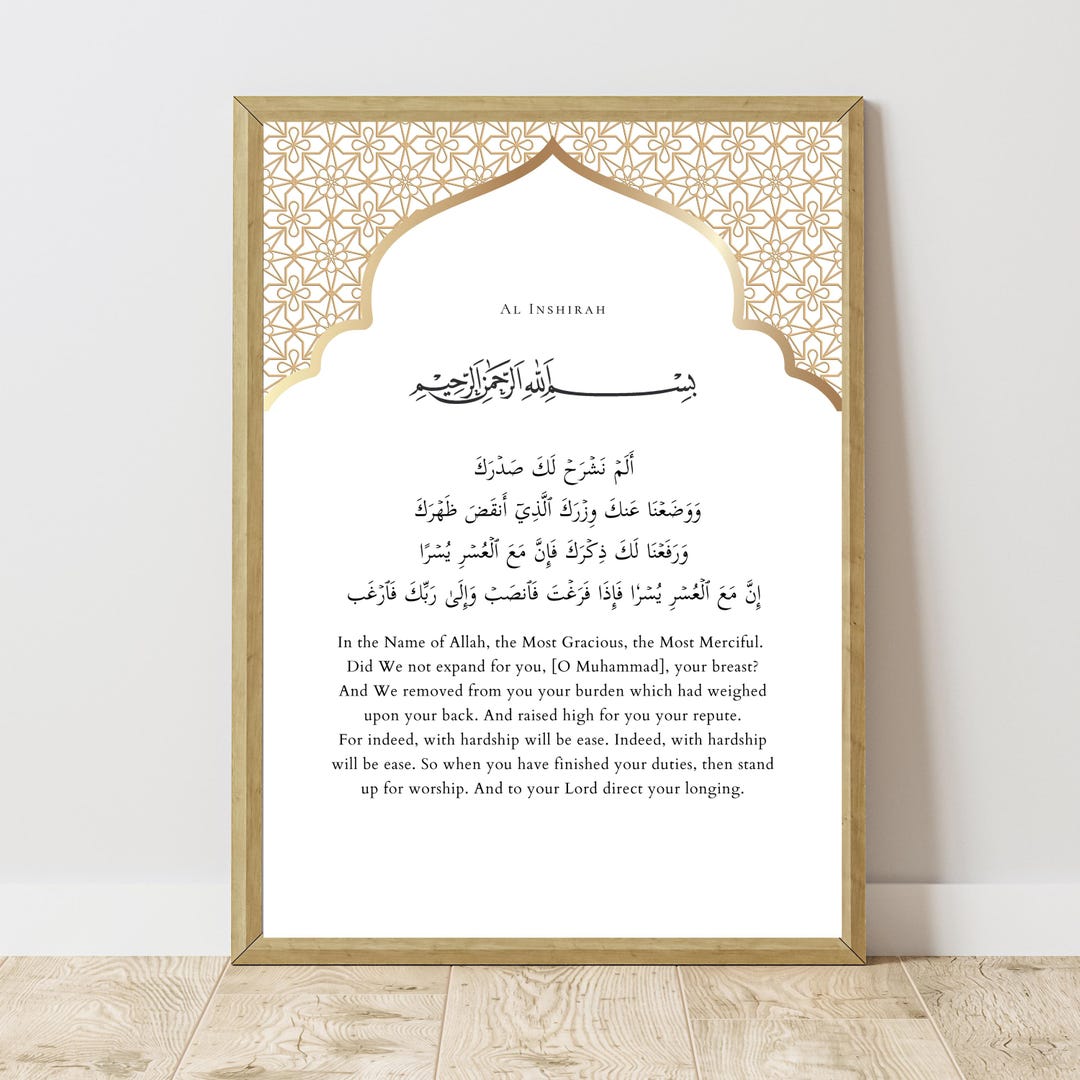 Al Inshirah
بِسْمِ اللهِ الرَّحْمٰنِ الرَّحِيْمِ
أَلَمۡ نَشۡرَحۡ لَكَ صَدۡرَكَ
وَوَضَعۡنَا عَنكَ وِزۡرَكَ ٱلَّذِيٓ أَنقَضَ ظَهۡرَكَ
وَرَفَعۡنَا لَكَ ذِكۡرَكَ فَإِنَّ مَعَ ٱلۡعُسۡرِ يُسۡرًا
إِنَّ مَعَ ٱلۡعُسۡرِ يُسۡرٗا فَإِذَا فَرَغۡتَ فَٱنصَبۡ وَإِلَىٰ رَبِّكَ فَٱرۡغَب
In the Name of Allah, the Most Gracious, the Most Merciful.
Did We not expand for you, [O Muhammad], your breast?
And We removed from you your burden which had weighed
upon your back. And raised high for you your repute.
For indeed, with hardship will be ease. Indeed, with hardship
will be ease. So when you have finished your duties, then stand
up for worship. And to your Lord direct your longing.